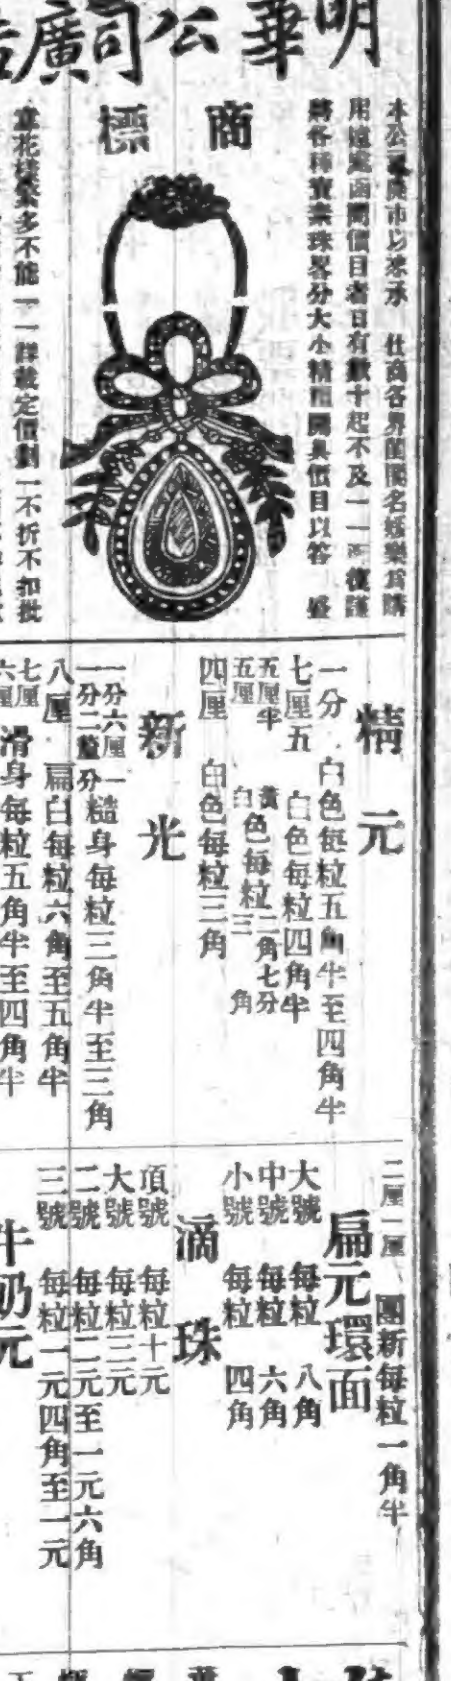 明華公司廣告
商標
本公司廣市以來承 仕商各界閨閣名媛樂為購
用遠處函問價目者日有數十起不及一一函復謹
將各種寶素珠畧分大小精粗開具價目以答 盛
花樣繁多不能一一詳載定價劃一不折不扣批
精元
一分 白色每粒五角半至四角半
七厘五 白色每粒四角半
五厘半 黃色每粒二角七分
五厘 白色每粒三角
四厘 白色每粒三角
新光
一分六厘
一分二厘
一分 糙身每粒三角半至三角
八厘 扁白每粒六角至五角半
七厘
六厘 滑身每粒五角半至四角半
二厘一厘 團新每粒一角半
扁元環面
大號 每粒 八角
中號 每粒 六角
小號 每粒 四角
滴珠
項號 每粒十元
大號 每粒三元
二號 每粒二元至一元六角
三號 每粒一元四角至一元
牛奶元